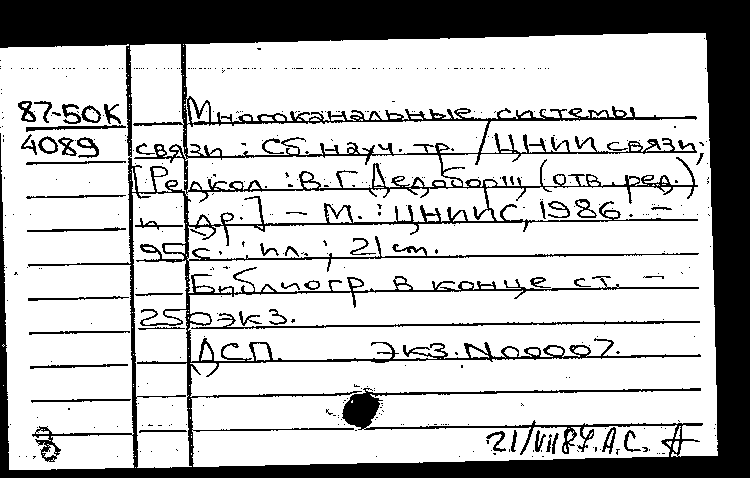 87-50К Многоканальные системы
4089 связи : Сб. науч. тр. / ЦНИИ связи;
[Редкол. : В. Г. Дедоборщ (отв. ред.)
и др.] – М. : ЦНИИС, 1986. –
95 с. : ил. ; 21 см.
Библиогр. в конце ст. –
250 экз.
ДСП. Экз. N 00007.
21/VII 87. А.С.